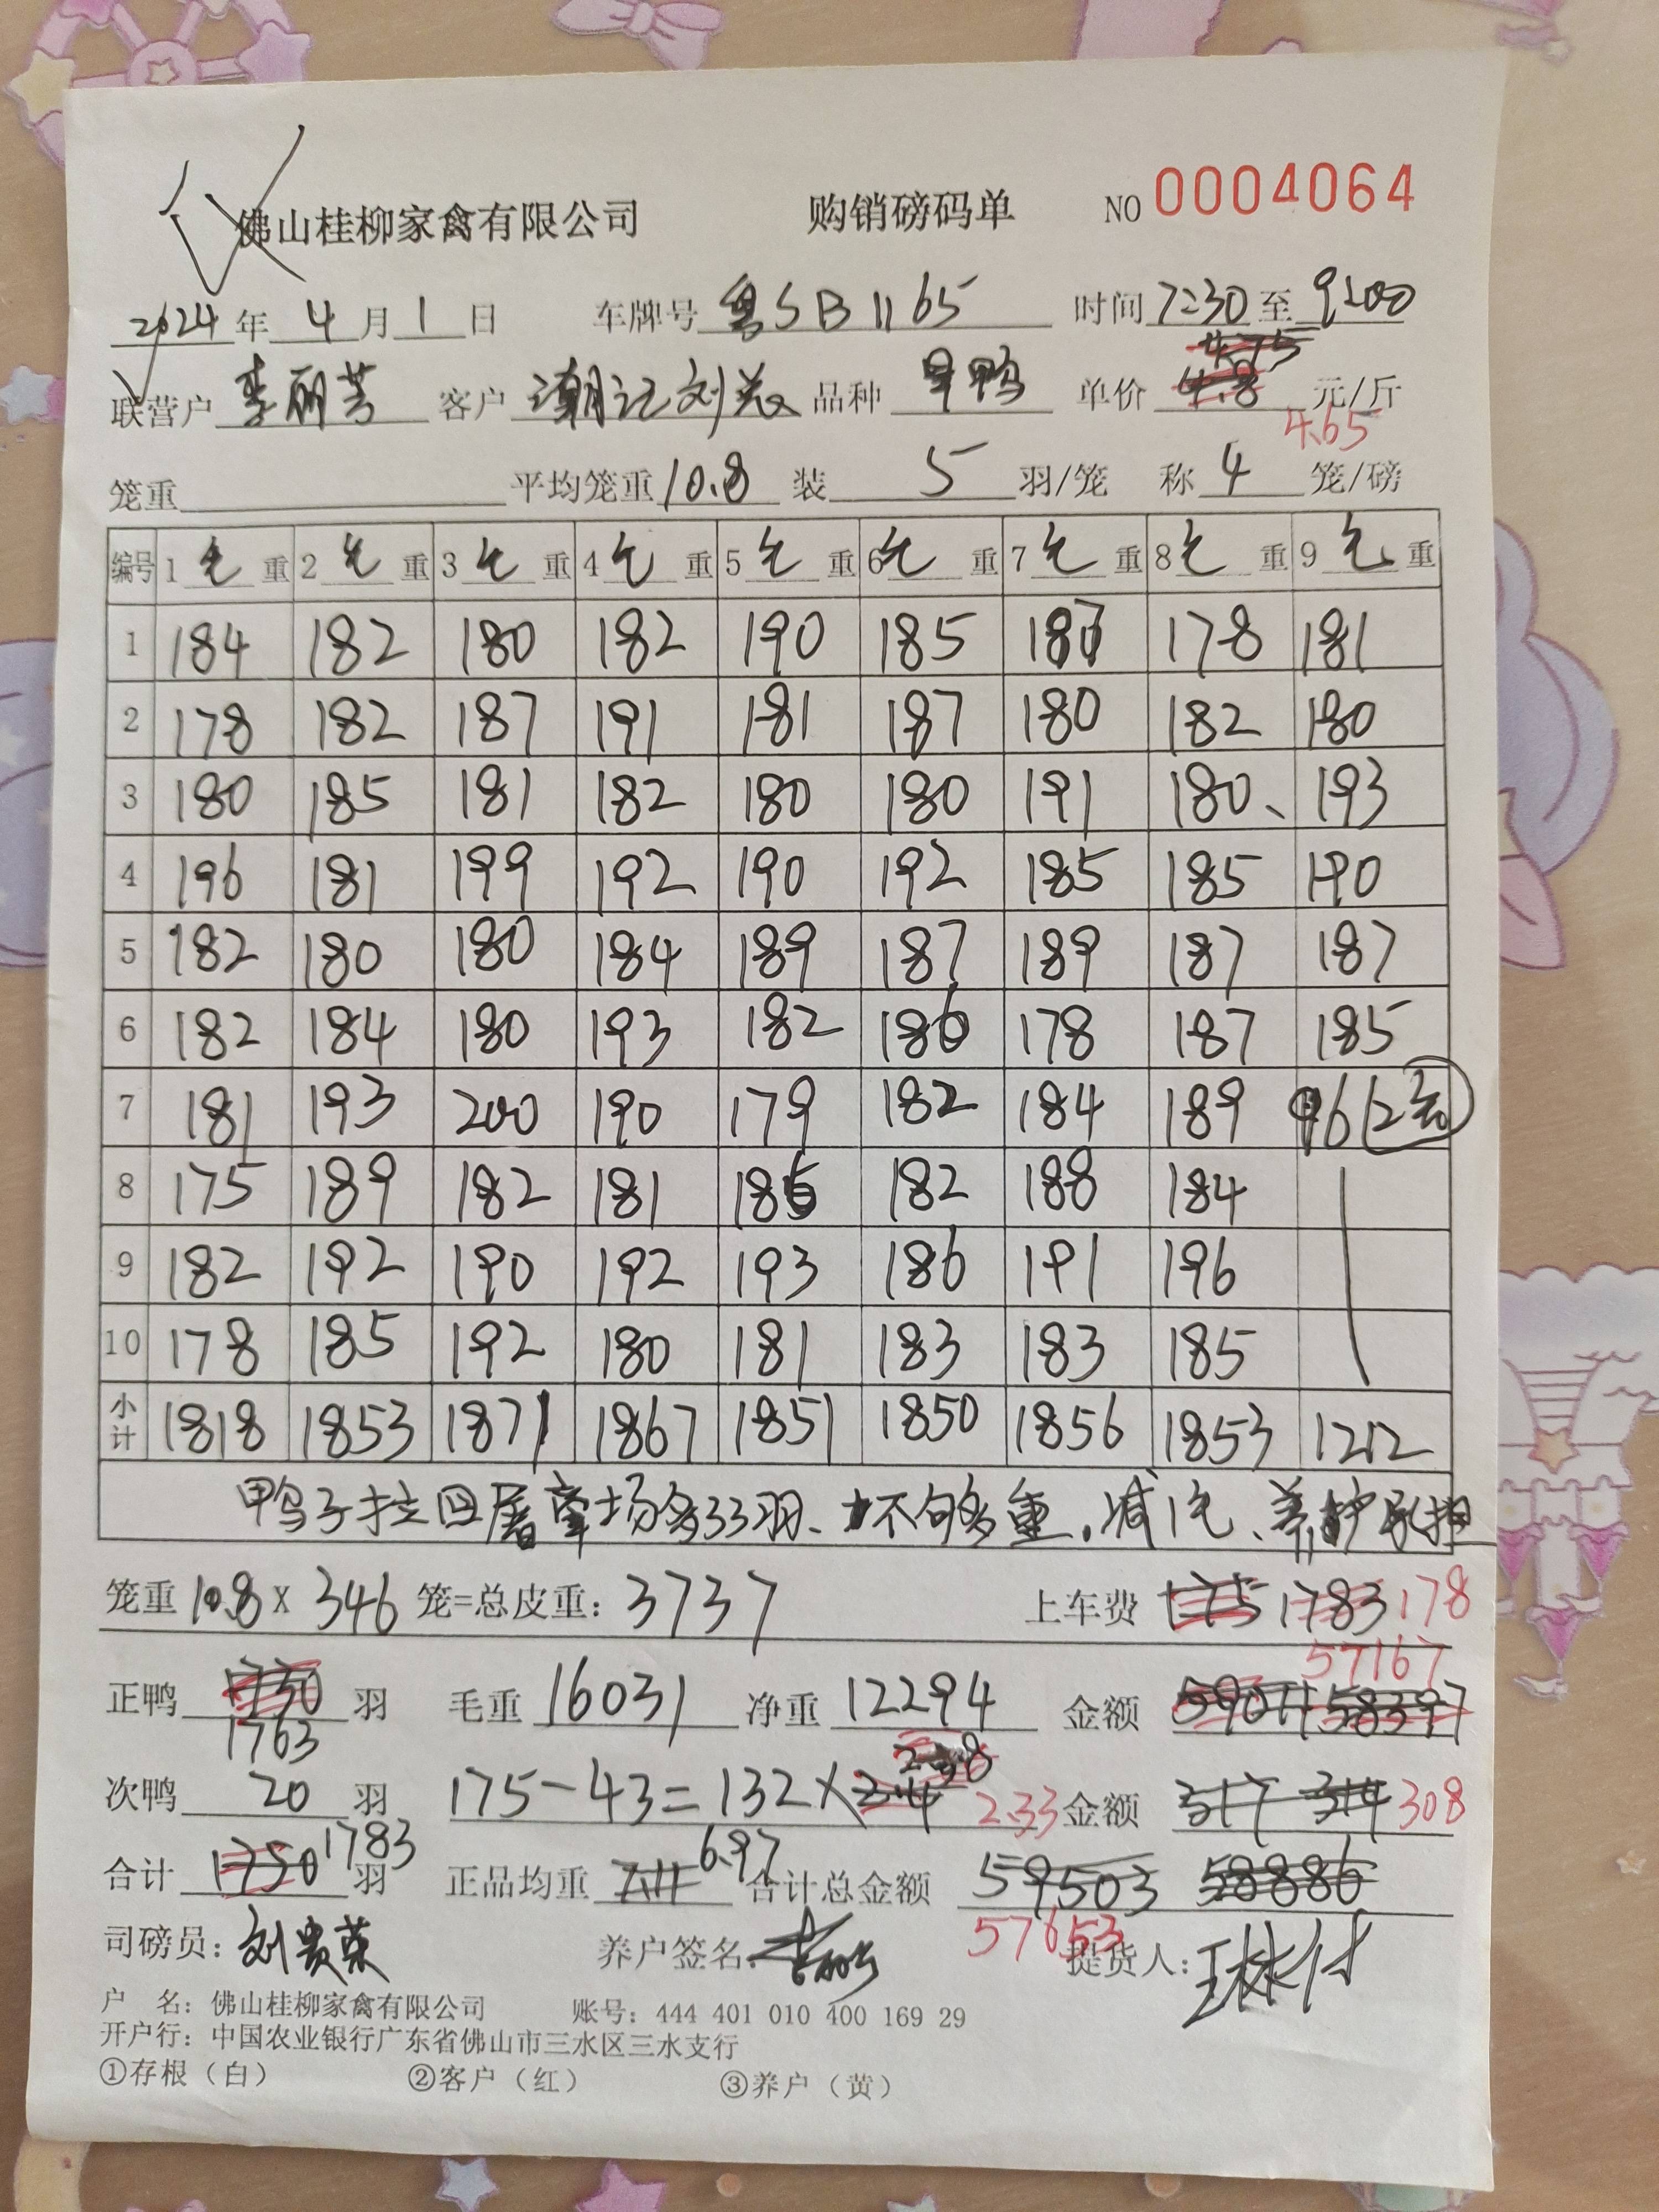 佛山桂柳家禽有限公司 购销磅码单 NO 0004064
2024年 4月 1日 车牌号 粤SB1165 时间 7:30 至 9:00
4.75
联营户 李丽芳 客户 潮记刘 品种 旱鸭 单价 4.8 元/斤
4.65
笼重 平均笼重 10.8 装 5 羽/笼 称 4 笼/磅
编号 1 毛 重 2 毛 重 3 毛 重 4 毛 重 5 毛 重 6 毛 重 7 毛 重 8 毛 重 9 毛 重
1 184 182 180 182 190 185 187 178 181
2 178 182 187 191 181 187 180 182 180
3 180 185 181 182 180 180 191 180、 193
4 196 181 199 192 190 192 185 185 190
5 182 180 180 184 189 187 189 187 187
6 182 184 180 193 182 186 178 187 185
7 181 193 200 190 179 182 184 189 96
8 175 189 182 181 186 182 188 184
9 182 192 190 192 193 186 191 196
10 178 185 192 180 181 183 183 185
小计 1818 1853 1871 1867 1851 1850 1856 1853 1212
鸭子拉回屠宰场多33羽、不够重,减1毛、养护承担
笼重 10.8 X 346 笼=总皮重: 3737 上车费 175 1783 178
57167
正鸭 1730 羽 毛重 16031 净重 12294 金额 59011 58397
1763
次鸭 20 羽 175-43=132×2.4 2.38 2.33 金额 317 314 308
合计 1750 1783 羽 正品均重 7.11 6.97 合计总金额 59503 58886
57653
司磅员: 刘贵荣 养户签名: 提货人:
户 名: 佛山桂柳家禽有限公司 账号: 444 401 010 400 169 29
开户行: 中国农业银行广东省佛山市三水区三水支行
①存根(白) ②客户(红) ③养户(黄)